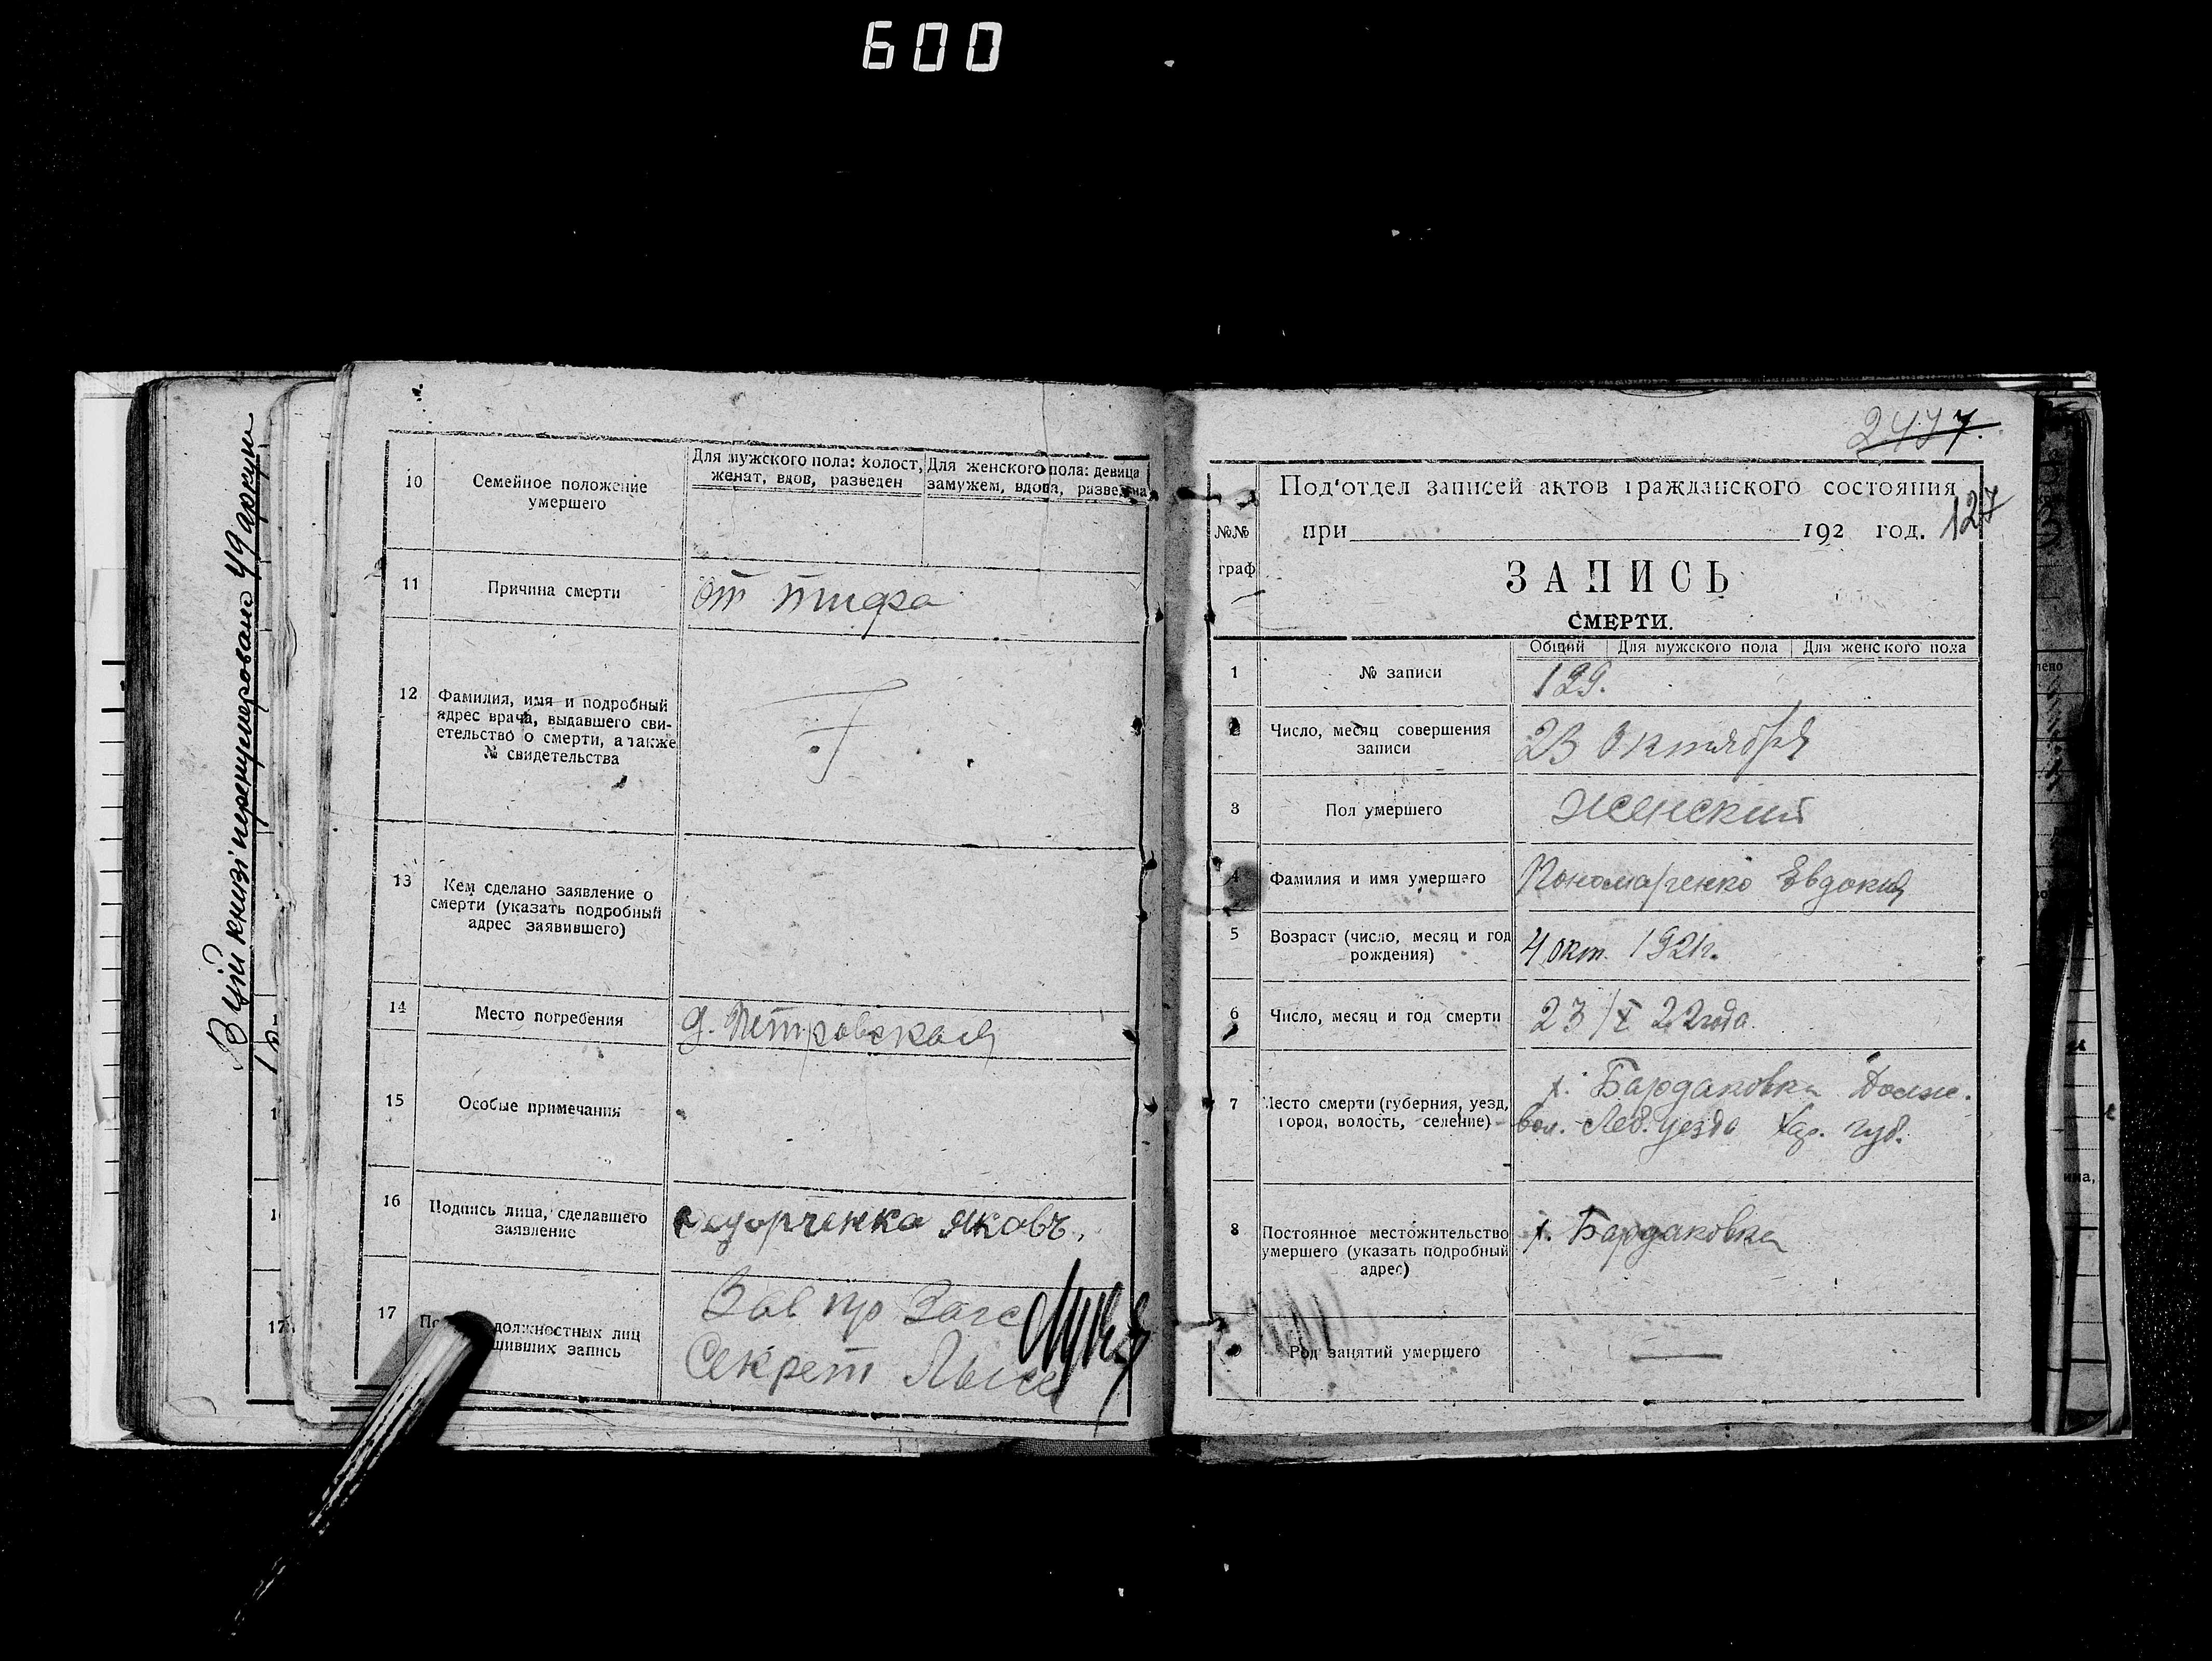 600
В цій книзі перенумеровано 49 аркуш
10
Семейное положение
умершего
Для мужского пола: холост,
женат, вдов, разведен
Для женского пола: девица
замужем, вдова, разведена
11
Причина смерти
от тифа
12
Фамилия, имя и подробный
адрес врача, выдавшего сви-
етельство о смерти, а также
№ свидетельства
13
Кем сделано заявление о
смерти (указать подробный
адрес заявившего)
14
Место погребения
д. Петровская
15
Особые примечания
16
Подпись лица, сделавшего
заявление
Яковъ.
17
должностных лиц
шивших запись
Зав пр Загс
Секрет
2477.
127
Под'отдел записей актов гражданского состояния
при 192 год.
№№
граф
ЗАПИСЬ
СМЕРТИ.
Общий Для мужского пола Для женского пола
1
№ записи
129.
2
Число, месяц совершения
записи
23 октября
3
Пол умершего
Женский
4
Фамилия и имя умершего
Пономаренко Евдокия
5
Возраст (число, месяц и год
рождения)
4 окт. 1921г.
6
Число, месяц и год смерти
23/X 22 года.
7
Место смерти (губерния, уезд,
город, волость, селение)
х. Бардаковка Должи.
вол. Леб. уезда Хар. губ.
8
Постоянное местожительство
умершего (указать подробный
адрес)
х. Бардаковка
9
Род занятий умершего
—